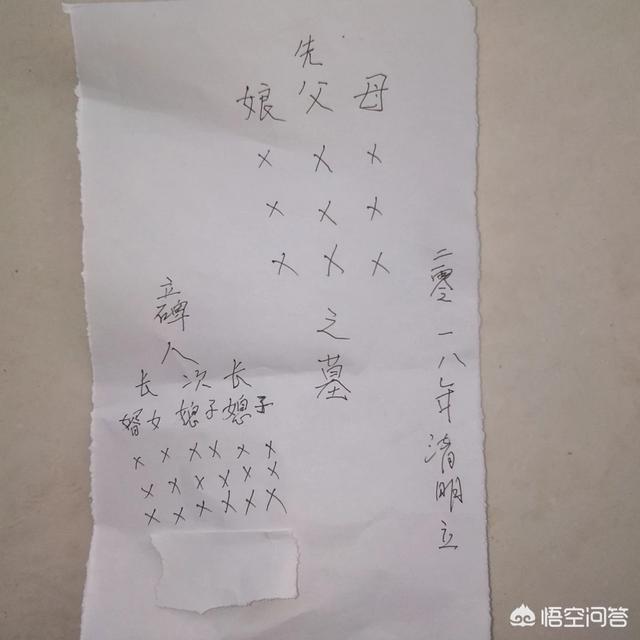 二零一八年清明立
母×××
先父×××之墓
娘×××
立碑人
长子×××
媳×××
次子×××
媳×××
长女×××
婿×××
悟空问答